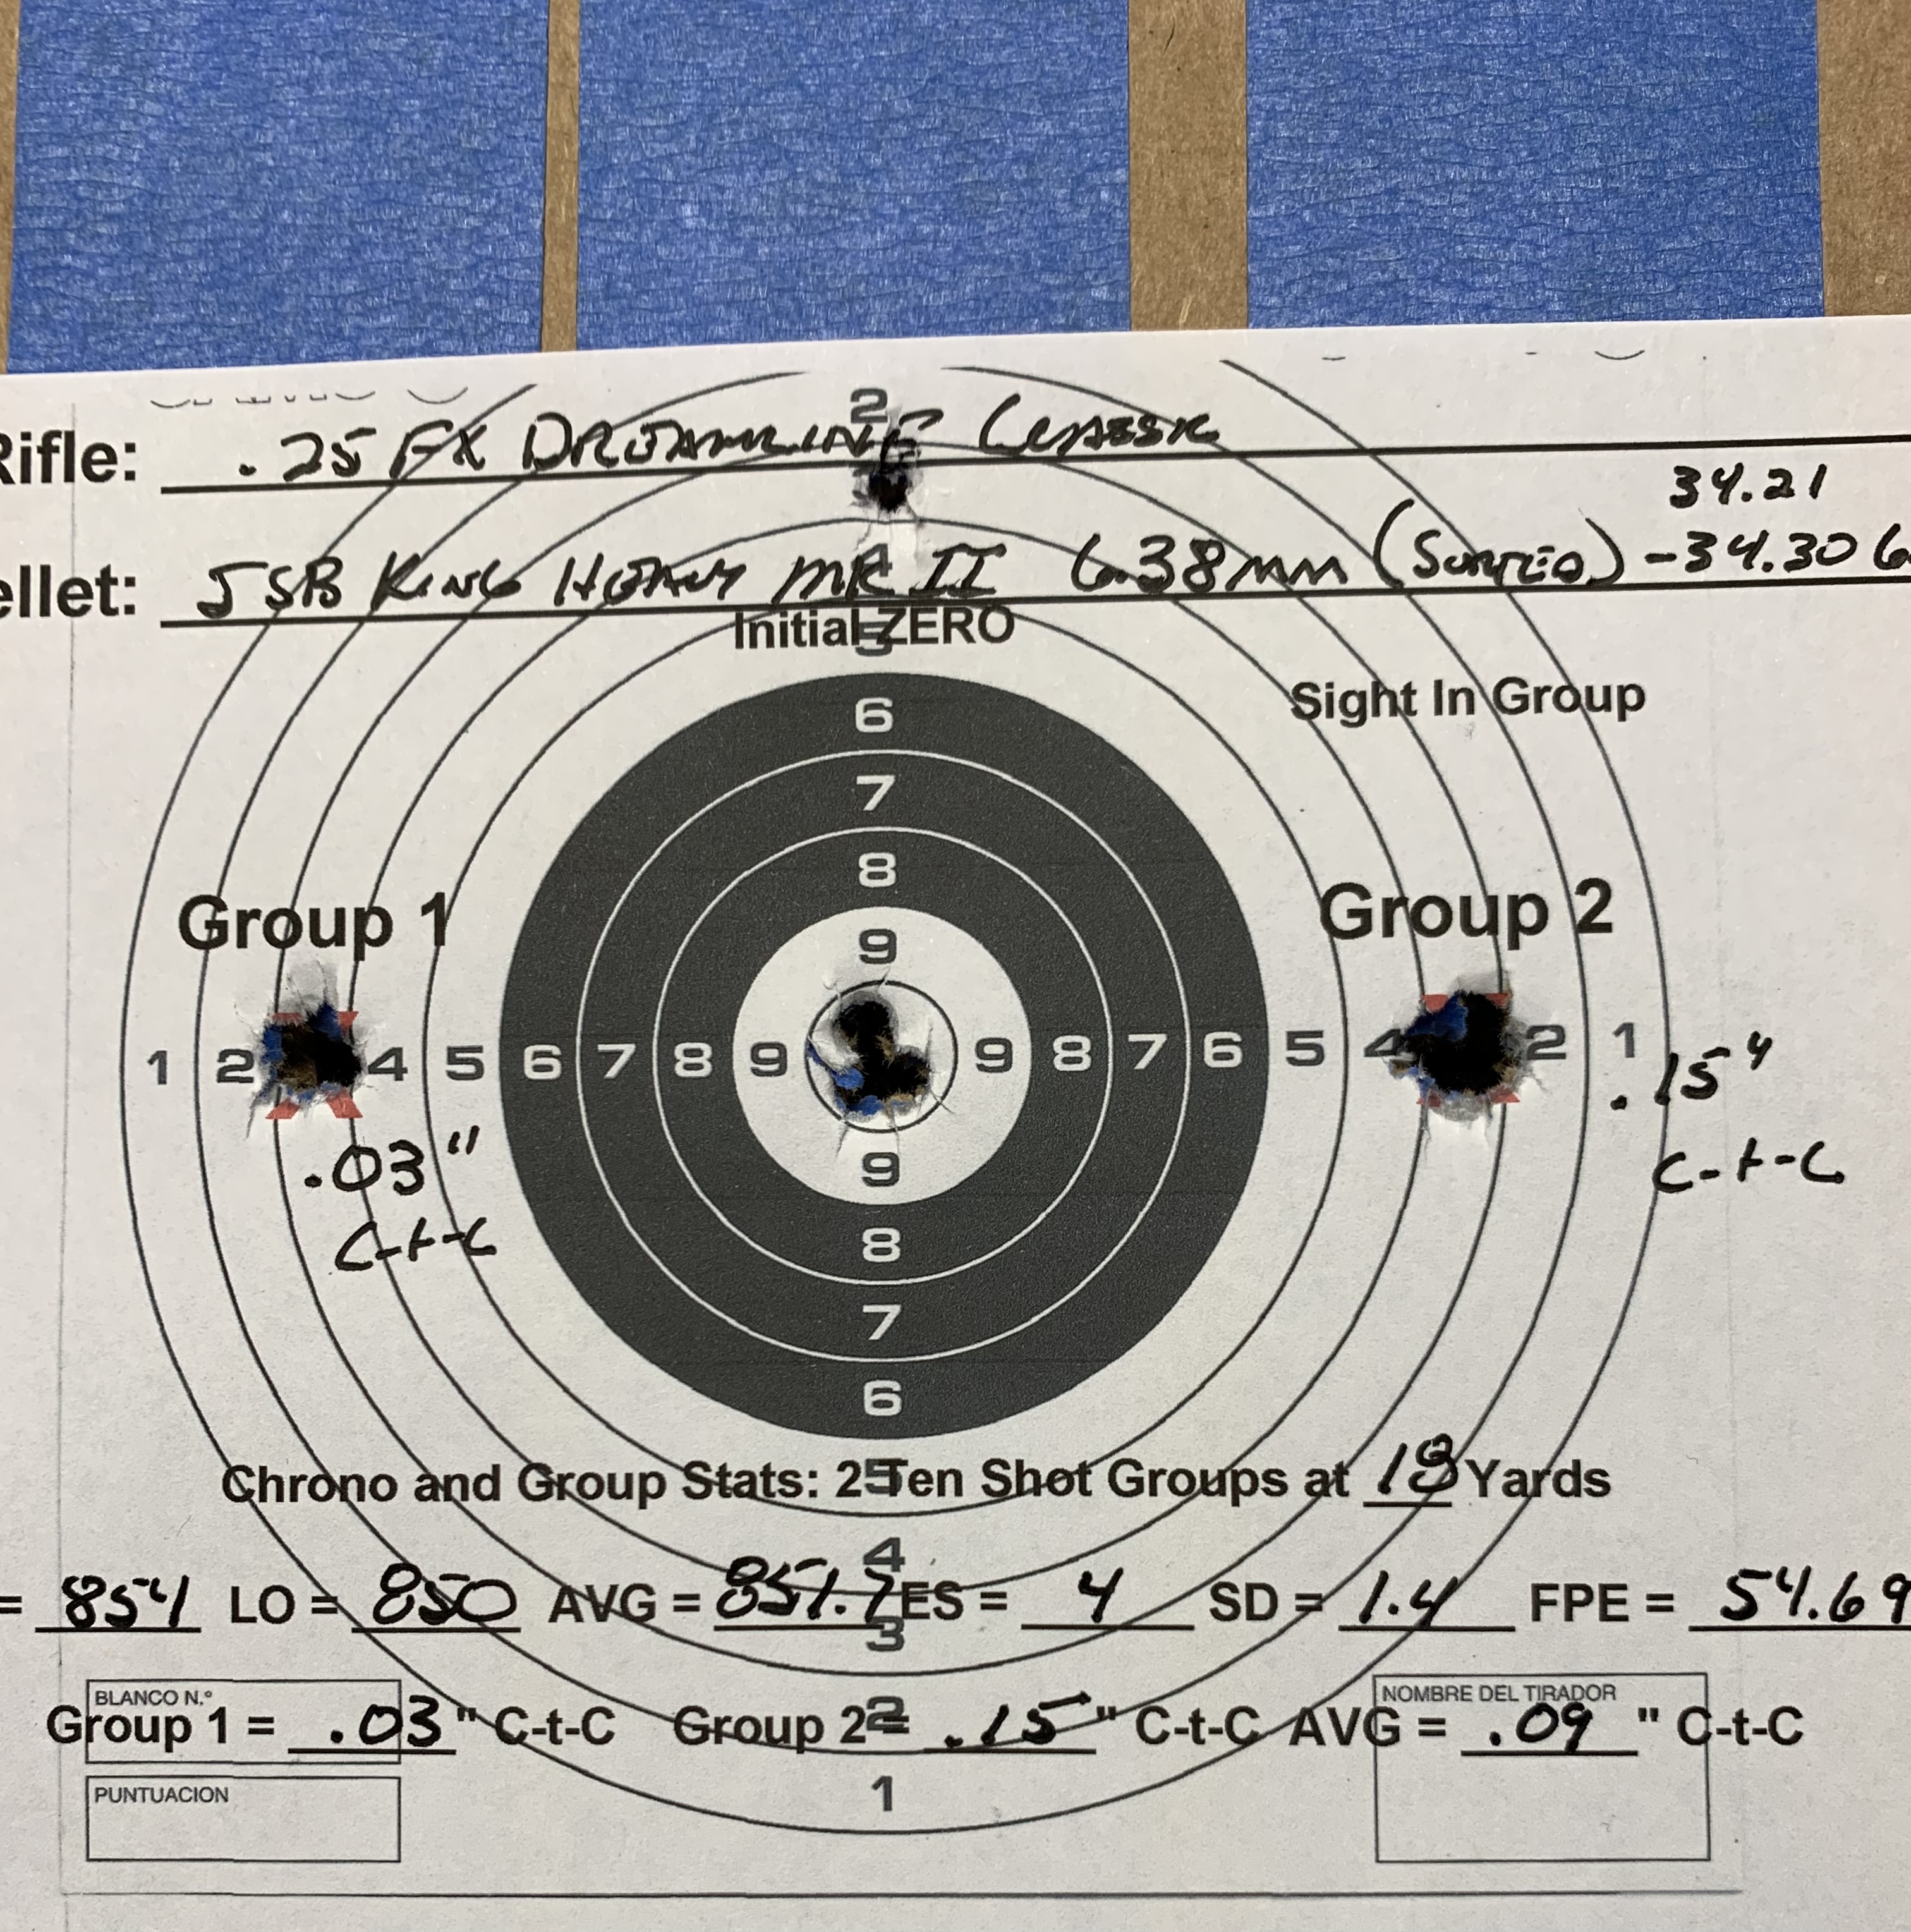 2
Rifle: .25 FX DREAMLINE CLASSIC
34.21
ellet: JSB KING HEAVY MK II 6.38mm (SORTED) -34.30 G
4
Initial ZERO
5
Sight In Group
6
7
8
Group 1
9
Group 2
1 2 4 5 6 7 8 9 9 8 7 6 5 4 2 1
.15"
C-t-C
.03"
C-t-C
9
8
7
6
Chrono and Group Stats: 2 Ten Shot Groups at 18 Yards
5
4
= 854 LO = 850 AVG = 851.7 ES = 4 SD = 1.4 FPE = 54.69
3
BLANCO N.º
NOMBRE DEL TIRADOR
2
Group 1 = .03" C-t-C Group 2 = .15" C-t-C AVG = .09" C-t-C
PUNTUACION
1